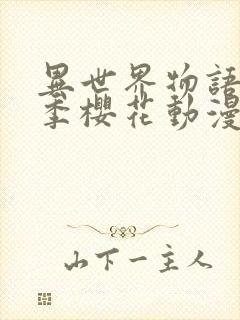 異世界物語
季櫻花動漫
山下一主人